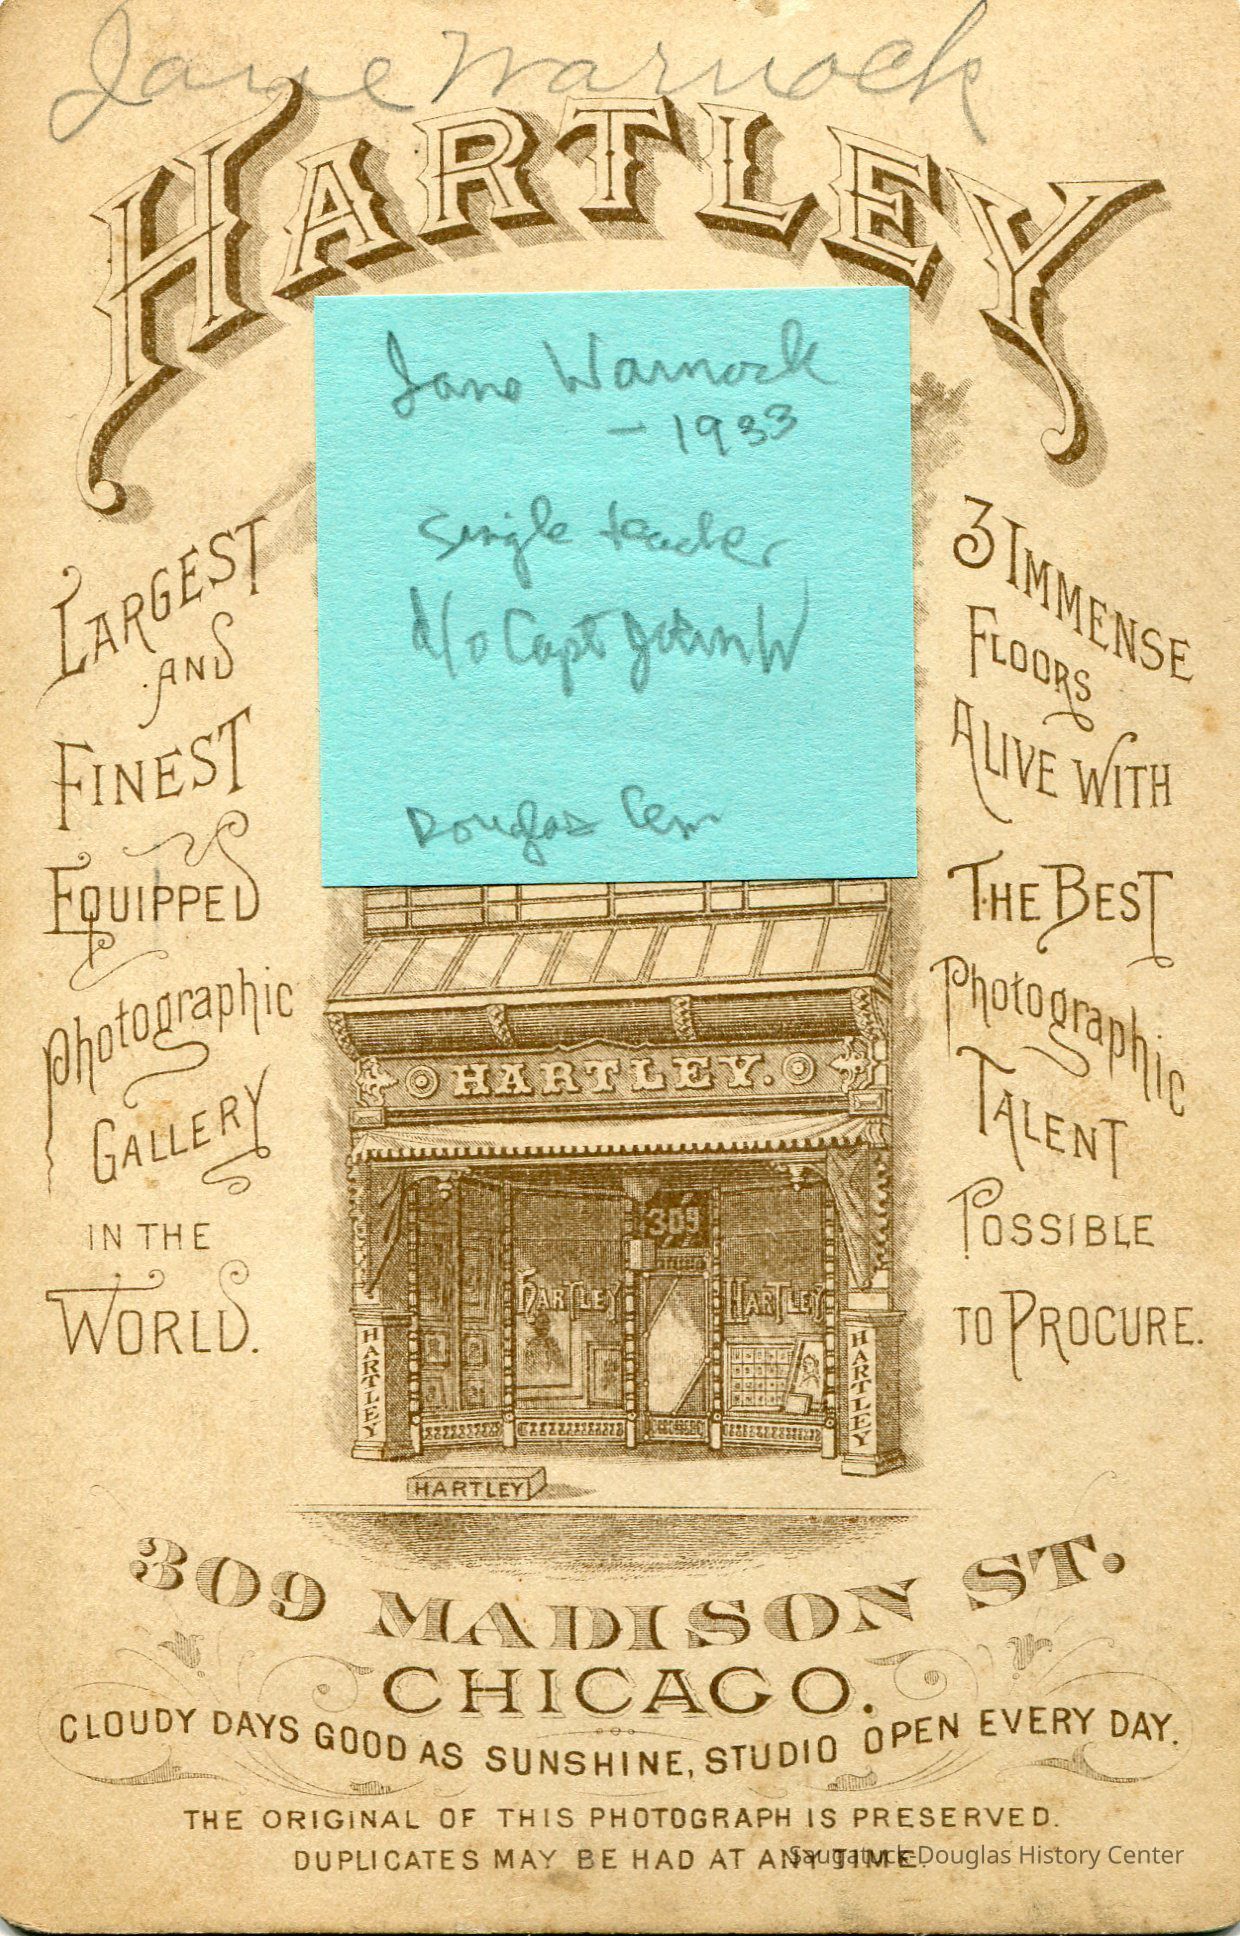 Jane Warnock
HARTLEY
Jane Warnock
- 1933
single teacher
d/o Capt John W
Douglas Cem
LARGEST
AND
FINEST
EQUIPPED
Photographic
GALLERY
IN THE
WORLD.
3 IMMENSE
FLOORS
ALIVE WITH
THE BEST
Photographic
TALENT
POSSIBLE
TO PROCURE.
HARTLEY.
309
HARTLEY
HARTLEY
HARTLEY
HARTLEY
HARTLEY
309 MADISON ST.
CHICAGO.
CLOUDY DAYS GOOD AS SUNSHINE, STUDIO OPEN EVERY DAY.
THE ORIGINAL OF THIS PHOTOGRAPH IS PRESERVED.
DUPLICATES MAY BE HAD AT ANY TIME.
Saugatuck-Douglas History Center